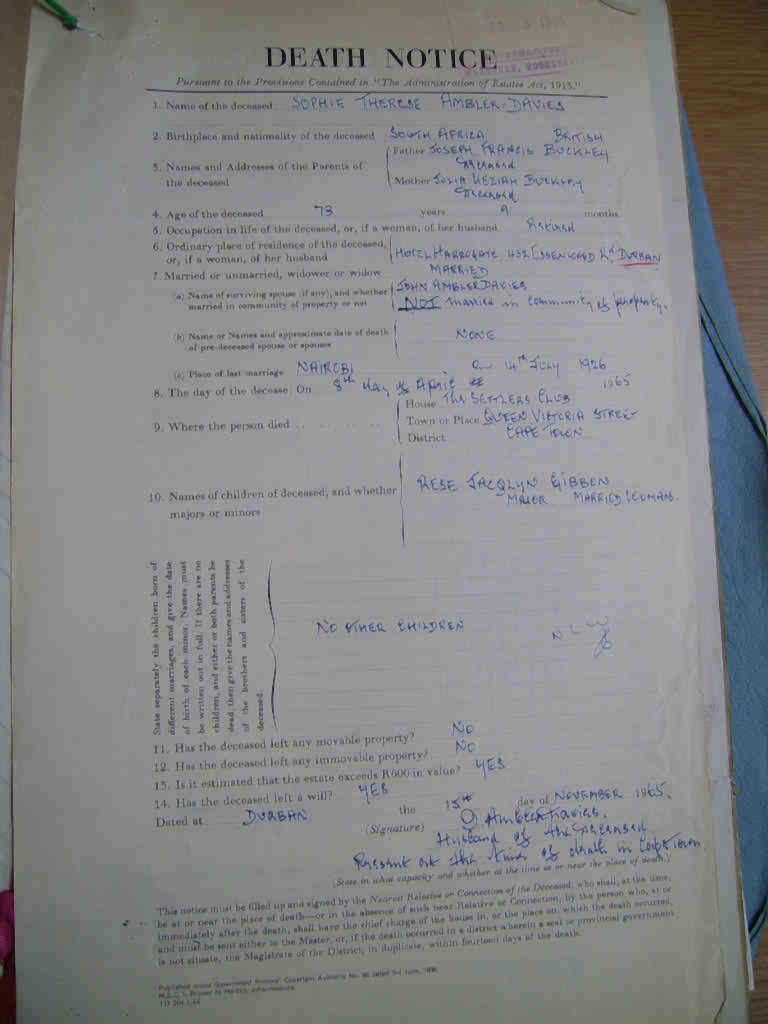 DEATH NOTICE
Pursuant to the Provisions Contained in "The Administration of Estates Act, 1913."
1. Name of the deceased SOPHIE THERESE AMBLER-DAVIES
2. Birthplace and nationality of the deceased SOUTH AFRICA BRITISH
3. Names and Addresses of the Parents of the deceased
Father JOSEPH FRANCIS BUCKLEY
Deceased
Mother JULIA KEZIAH BUCKLEY
Deceased
4. Age of the deceased 73 years 9 months
5. Occupation in life of the deceased, or, if a woman, of her husband Retired
6. Ordinary place of residence of the deceased,
or, if a woman, of her husband
HOTEL HARROGATE 432 ESSENWOOD Rd DURBAN
7. Married or unmarried, widower or widow MARRIED
(a) Name of surviving spouse (if any), and whether
married in community of property or not
JOHN AMBLER DAVIES
NOT married in community of property.
(b) Name or Names and approximate date of death
of pre-deceased spouse or spouses
NONE
(c) Place of last marriage NAIROBI on 14th JULY 1926
8. The day of the decease: On 8th day of April 1965
9. Where the person died
House THE SETTLERS CLUB
Town or Place QUEEN VICTORIA STREET
District CAPE TOWN
10. Names of children of deceased, and whether
majors or minors
JACQLYN GIBBEN
MAJOR MARRIED WOMAN.
State separately the children born of
different marriages, and give the date
of birth of each minor. Names must
be written out in full. If there are no
children, and either or both parents be
dead, then give the names and addresses
of the brothers and sisters of the
deceased.
NO OTHER CHILDREN
11. Has the deceased left any movable property? NO
12. Has the deceased left any immovable property? NO
13. Is it estimated that the estate exceeds R600 in value? YES
14. Has the deceased left a will? YES
Dated at DURBAN the 15th day of NOVEMBER 1965.
(Signature) Ambler Davies.
Husband of the deceased
Present at the time of death in Cape Town
(State in what capacity and whether at the time at or near the place of death.)
This notice must be filled up and signed by the Nearest Relative or Connection of the Deceased, who shall, at the time,
be at or near the place of death—or in the absence of such near Relative or Connection, by the person who, at or
immediately after the death, shall have the chief charge of the house in, or the place on, which the death occurred,
and must be sent either to the Master, or, if the death occurred in a district wherein a seat of provincial government
is not situate, the Magistrate of the District, in duplicate, within fourteen days of the death.